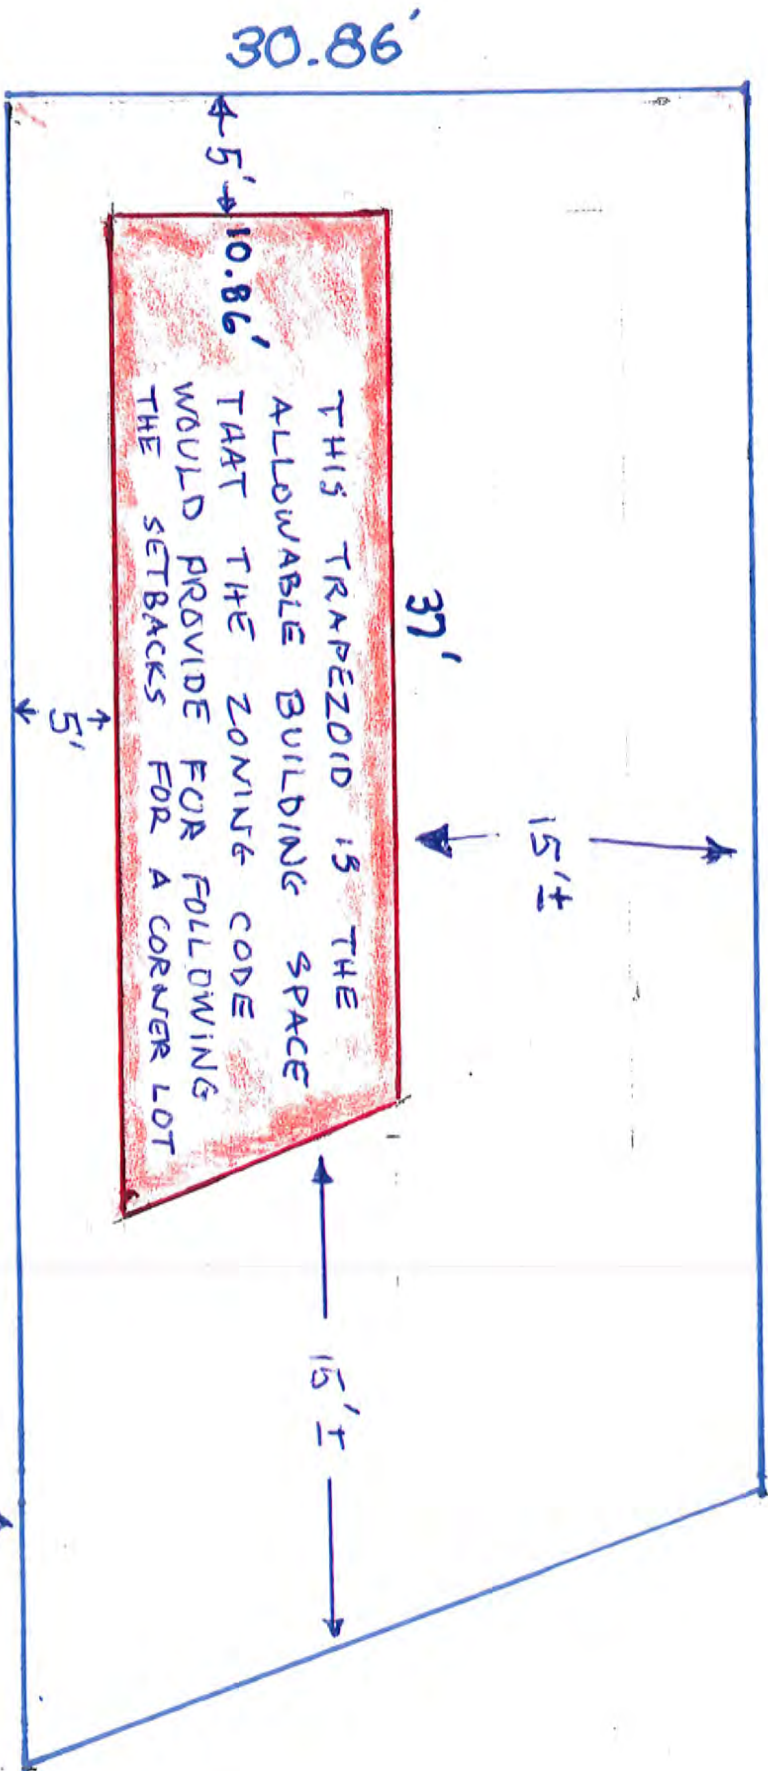 30.86'
5'
10.86'
37'
THIS TRAPEZOID IS THE
ALLOWABLE BUILDING SPACE
THAT THE ZONING CODE
WOULD PROVIDE FOR FOLLOWING
THE SETBACKS FOR A CORNER LOT
5'
15'±
15'±